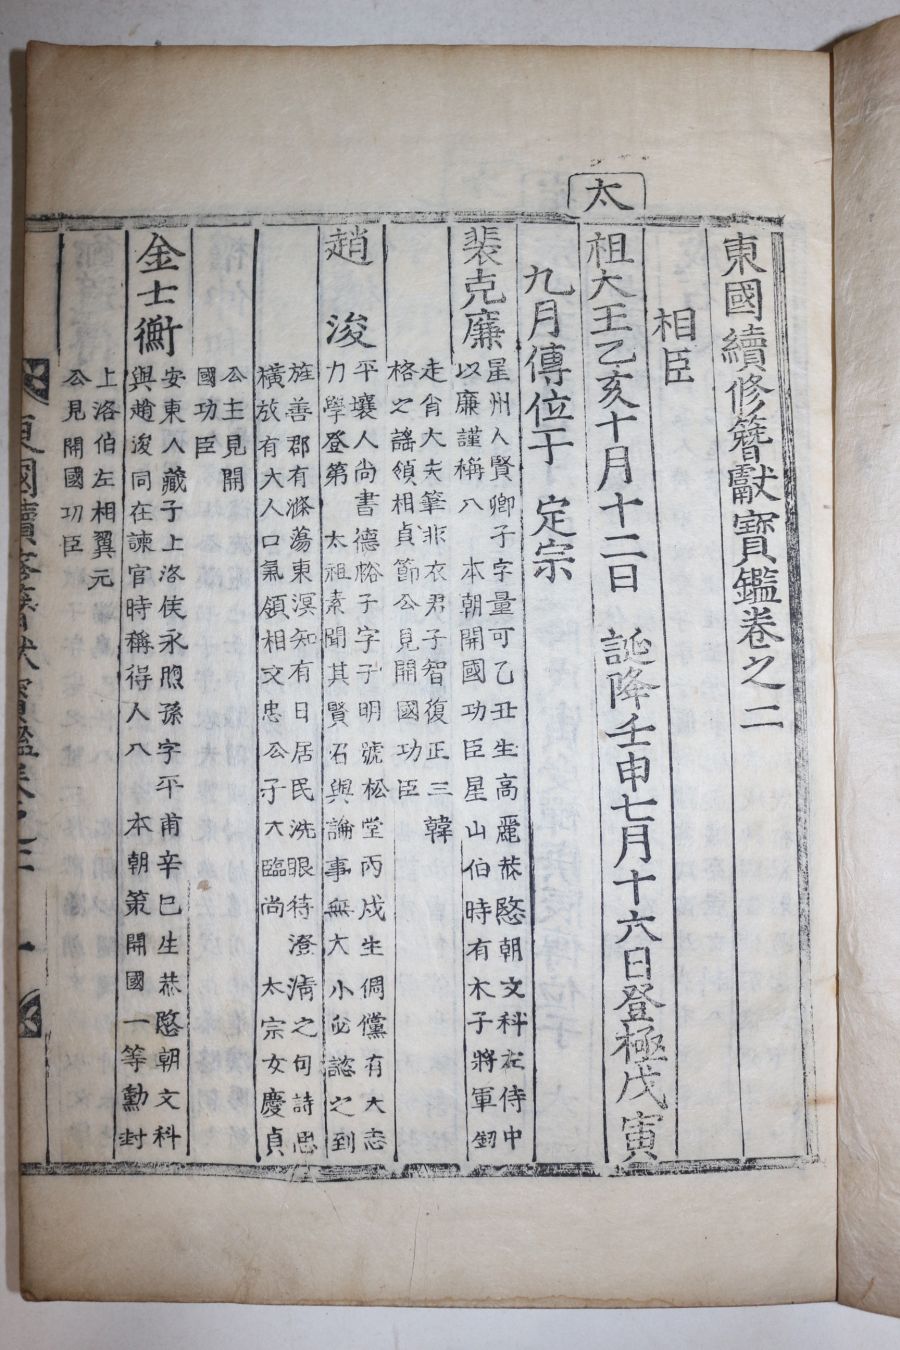 東國續修簪獻寶鑑卷之二
相臣
太
祖大王乙亥十月十二日 誕降壬申七月十六日登極戊寅
九月傳位于 定宗
裴克廉
星州人賢卿子字量可乙丑生高麗恭愍朝文科左侍中
以廉謹稱入 本朝開國功臣星山伯時有木子將軍釖
走肖大夫筆非衣君子智復正三韓
格之謠領相貞節公見開國功臣
趙 浚
平壤人尚書德裕子字子明號松堂丙戌生倜儻有大志
力學登第 太祖素聞其賢召與論事無大小必諮之到
旌善郡有滌蕩東溟知有日居民洗眼待澄淸之句詩思
橫放有大人口氣領相文忠公子大臨尚 太宗女慶貞
公主見開
國功臣
金士衡
安東人藏子上洛侯永煦孫字平甫辛巳生恭愍朝文科
與趙浚同在諫官時稱得人入 本朝策開國一等勳封
上洛伯左相翼元
公見開國功臣
東國續修簪獻寶鑑卷之二 一